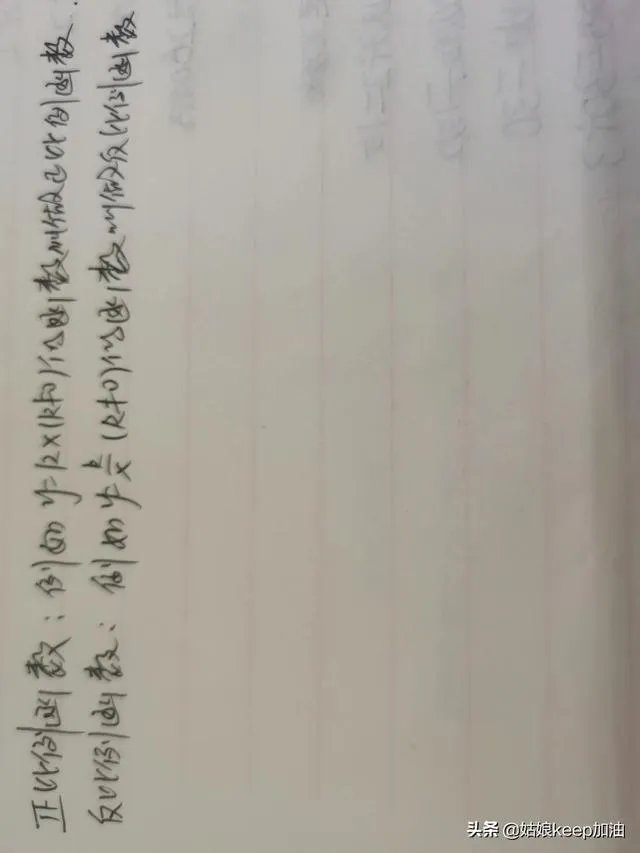 正比例函数：例如y=kx(k≠0)的函数叫做正比例函数.
反比例函数：例如y=k/x(k≠0)的函数叫做反比例函数
头条 @姑娘keep加油